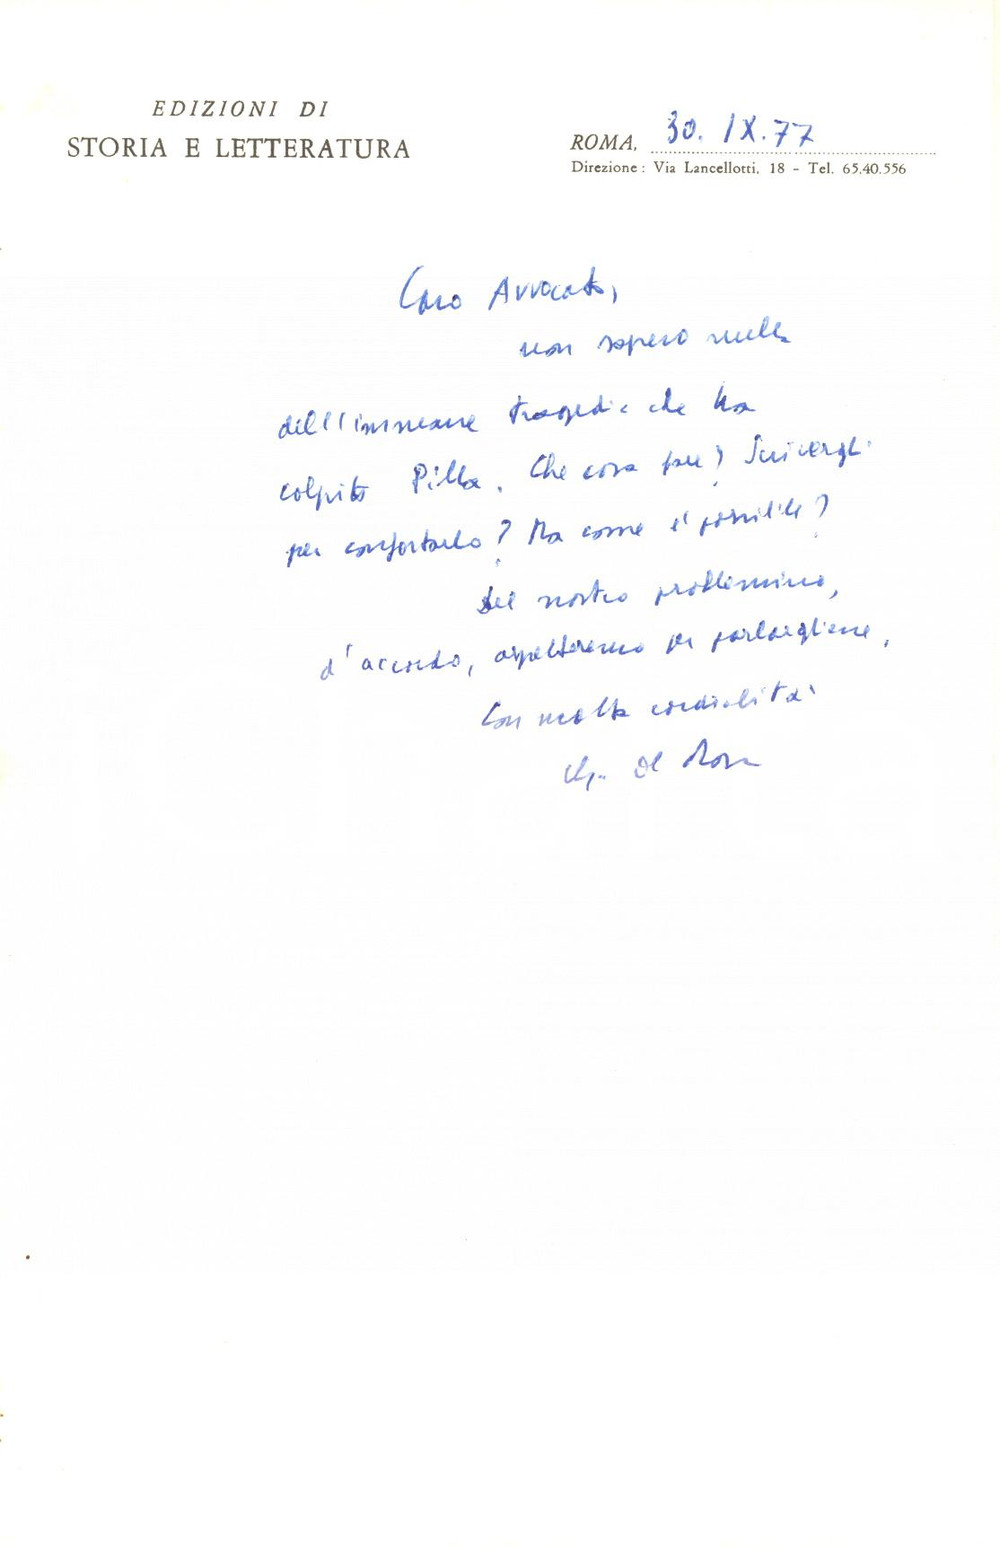 EDIZIONI DI
STORIA E LETTERATURA
ROMA, 30. IX. 77
Direzione : Via Lancellotti, 18 - Tel. 65.40.556
Caro Avvocato,
non sapevo nulla
dell'immane tragedia che ha
colpito Pilla. Che cosa fare? Scrivergli
per confortarlo? Ma come è possibile?
Del nostro problemino,
d'accordo, aspetteremo per parlargliene.
Con molta cordialità
De Rosa